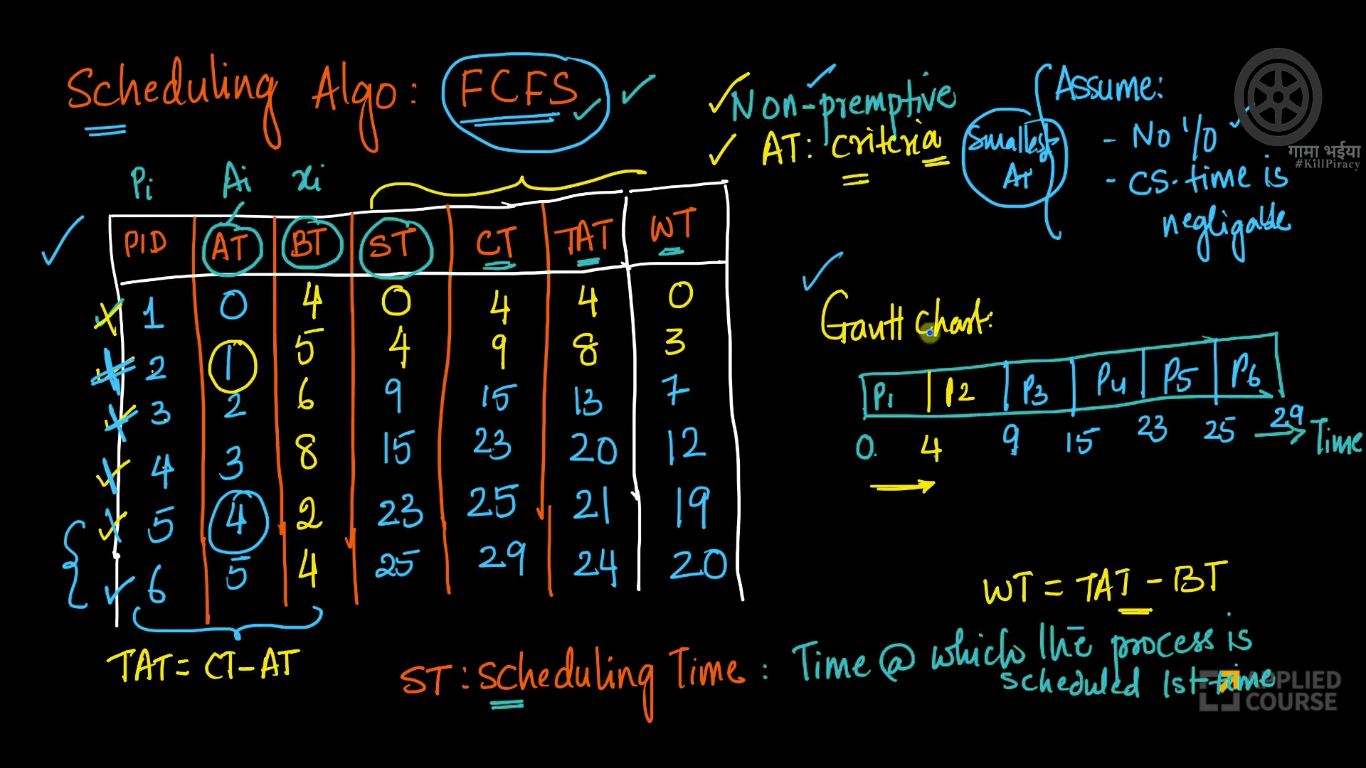 Scheduling Algo: FCFS
Non-premptive
AT: criteria
Smallest
AT
Assume:
- No I/O
- CS-time is
negligable
गामा भईया
#KillPiracy
Pi Ai xi
PID AT BT ST CT TAT WT
1 0 4 0 4 4 0
2 1 5 4 9 8 3
3 2 6 9 15 13 7
4 3 8 15 23 20 12
5 4 2 23 25 21 19
6 5 4 25 29 24 20
Gantt chart:
P1 P2 P3 P4 P5 P6
0 4 9 15 23 25 29 Time
WT = TAT - BT
TAT = CT - AT
ST: scheduling Time: Time @ which the process is
scheduled 1st time
APPLIED
COURSE